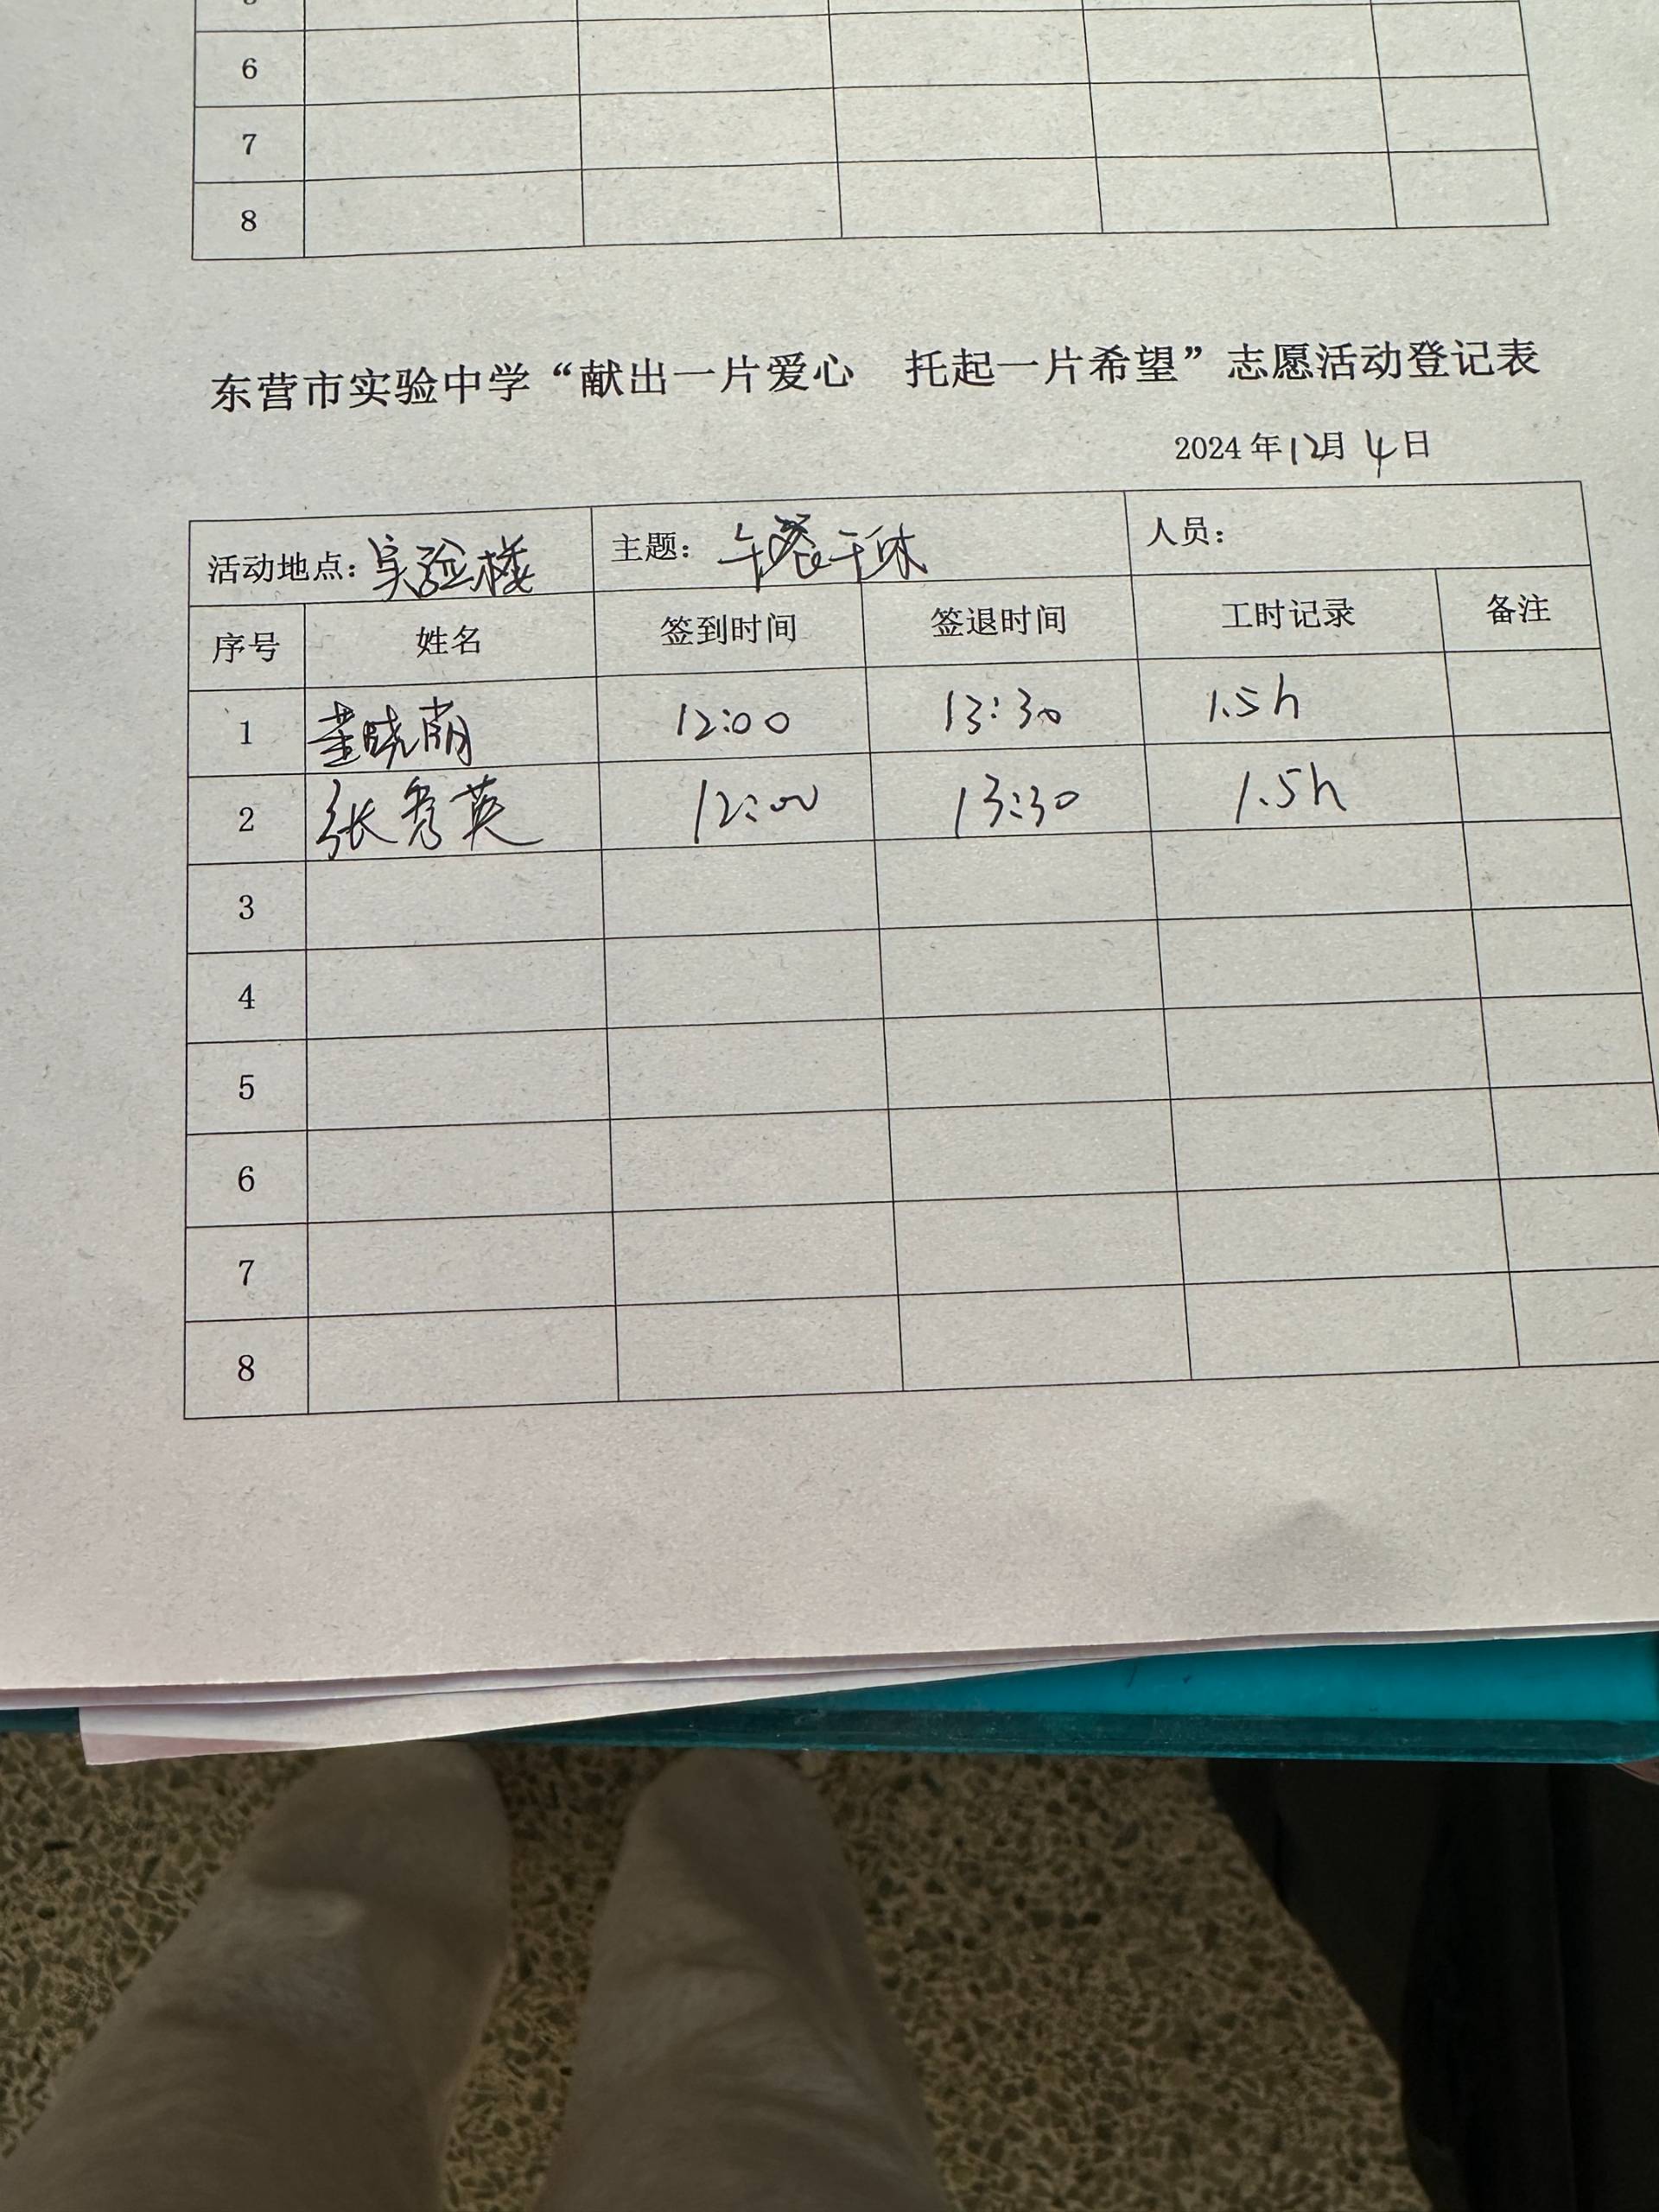 6
7
8
东营市实验中学“献出一片爱心 托起一片希望”志愿活动登记表
2024年12月4日
活动地点：实验楼 主题：午餐午休 人员：
序号 姓名 签到时间 签退时间 工时记录 备注
1 董晓萌 12:00 13:30 1.5h
2 张秀英 12:00 13:30 1.5h
3
4
5
6
7
8